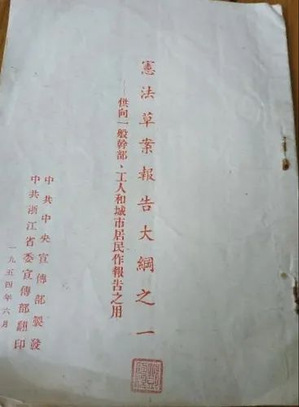 憲法草案報告大綱之一
——供向一般幹部、工人和城市居民作報告之用
中共中央宣傳部製發
中共浙江省委宣傳部翻印
一九五四年六月